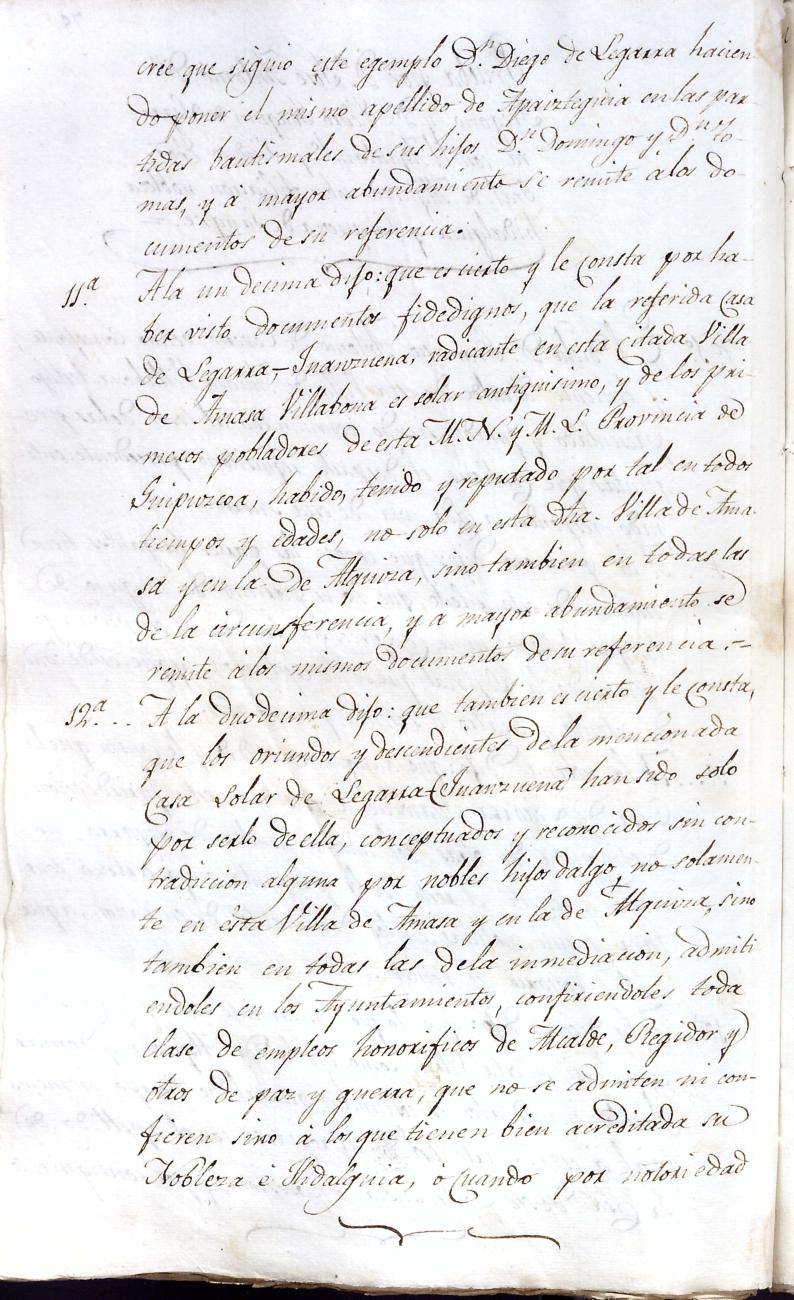 cree que siguio este egemplo D.n Diego de Legarra hacien
do poner el mismo apellido de Apaizteguia en las par-
tidas bautismales de sus hijos D.n Domingo y D.n To-
mas, y á mayor abundamiento se remite álos do-
cumentos de su referencia.
11.a A la undecima dijo: que es cierto y le consta por ha-
ber visto documentos fidedignos, que la referida Casa
de Legarra, radicante en esta citada Villa
de Amasa Villabona es solar antiquisimo, y de los pri-
meros pobladores de esta M. N. y M. L. Provincia de
Guipuzcoa, habido, tenido y reputado por tal en todos
tiempos y edades, no solo en esta dha. Villa de Ama-
sa y en la de Alquiza, sino tambien en todas las
de la circunsferencia, y á mayor abundamiento se
remite álos mismos documentos de su referencia.=
12.a .. A la duodecima dijo: que tambien es cierto y le consta,
que los oriundos y descendientes de la mencionada
Casa Solar de Legarra han sido solo
por serlo de ella, conceptuados y reconocidos sin con-
tradiccion alguna por nobles hijos dalgo, no solamen-
te en esta Villa de Amasa y en la de Alquiza, sino
tambien en todas las dela inmediacion, admiti
endoles en los Ayuntamientos, confiriendoles toda
clase de empleos honorificos de Alcalde, Regidor y
otros de paz y guerra, que no se admiten ni con-
fieren sino á los que tienen bien acreditada su
Nobleza é Hidalguia, ó cuando por notoriedad